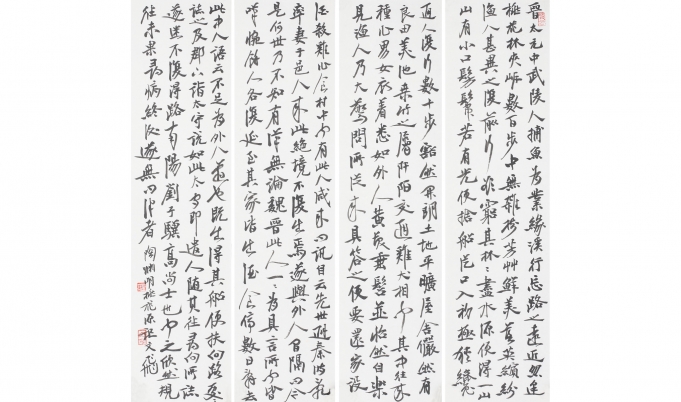 晉太元中武陵人捕魚為業緣溪行忘路之遠近忽逢
桃花林夾岸數百步中無雜樹芳草鮮美落英繽紛
漁人甚異之復前行欲窮其林林盡水源便得一山
山有小口髣髴若有光便捨船從口入初極狹纔
通人復行數十步豁然開朗土地平曠屋舍儼然有
良田美池桑竹之屬阡陌交通雞犬相聞其中往來
種作男女衣着悉如外人黃髮垂髫並怡然自樂
見漁人乃大驚問所從來具答之便要還家設
酒殺雞作食村中聞有此人咸來問訊自云先世避秦時亂
率妻子邑人來此絕境不復出焉遂與外人間隔問今
是何世乃不知有漢無論魏晉此人一一為具言所聞皆
嘆惋餘人各復延至其家皆出酒食停數日辭去
此中人語云不足為外人道也既出得其船便扶向路處處
誌之及郡下詣太守說如此太守即遣人隨其往尋向所誌
遂迷不復得路南陽劉子驥高尚士也聞之欣然規
往未果尋病終後遂無問津者 陶淵明桃花源記 文飛